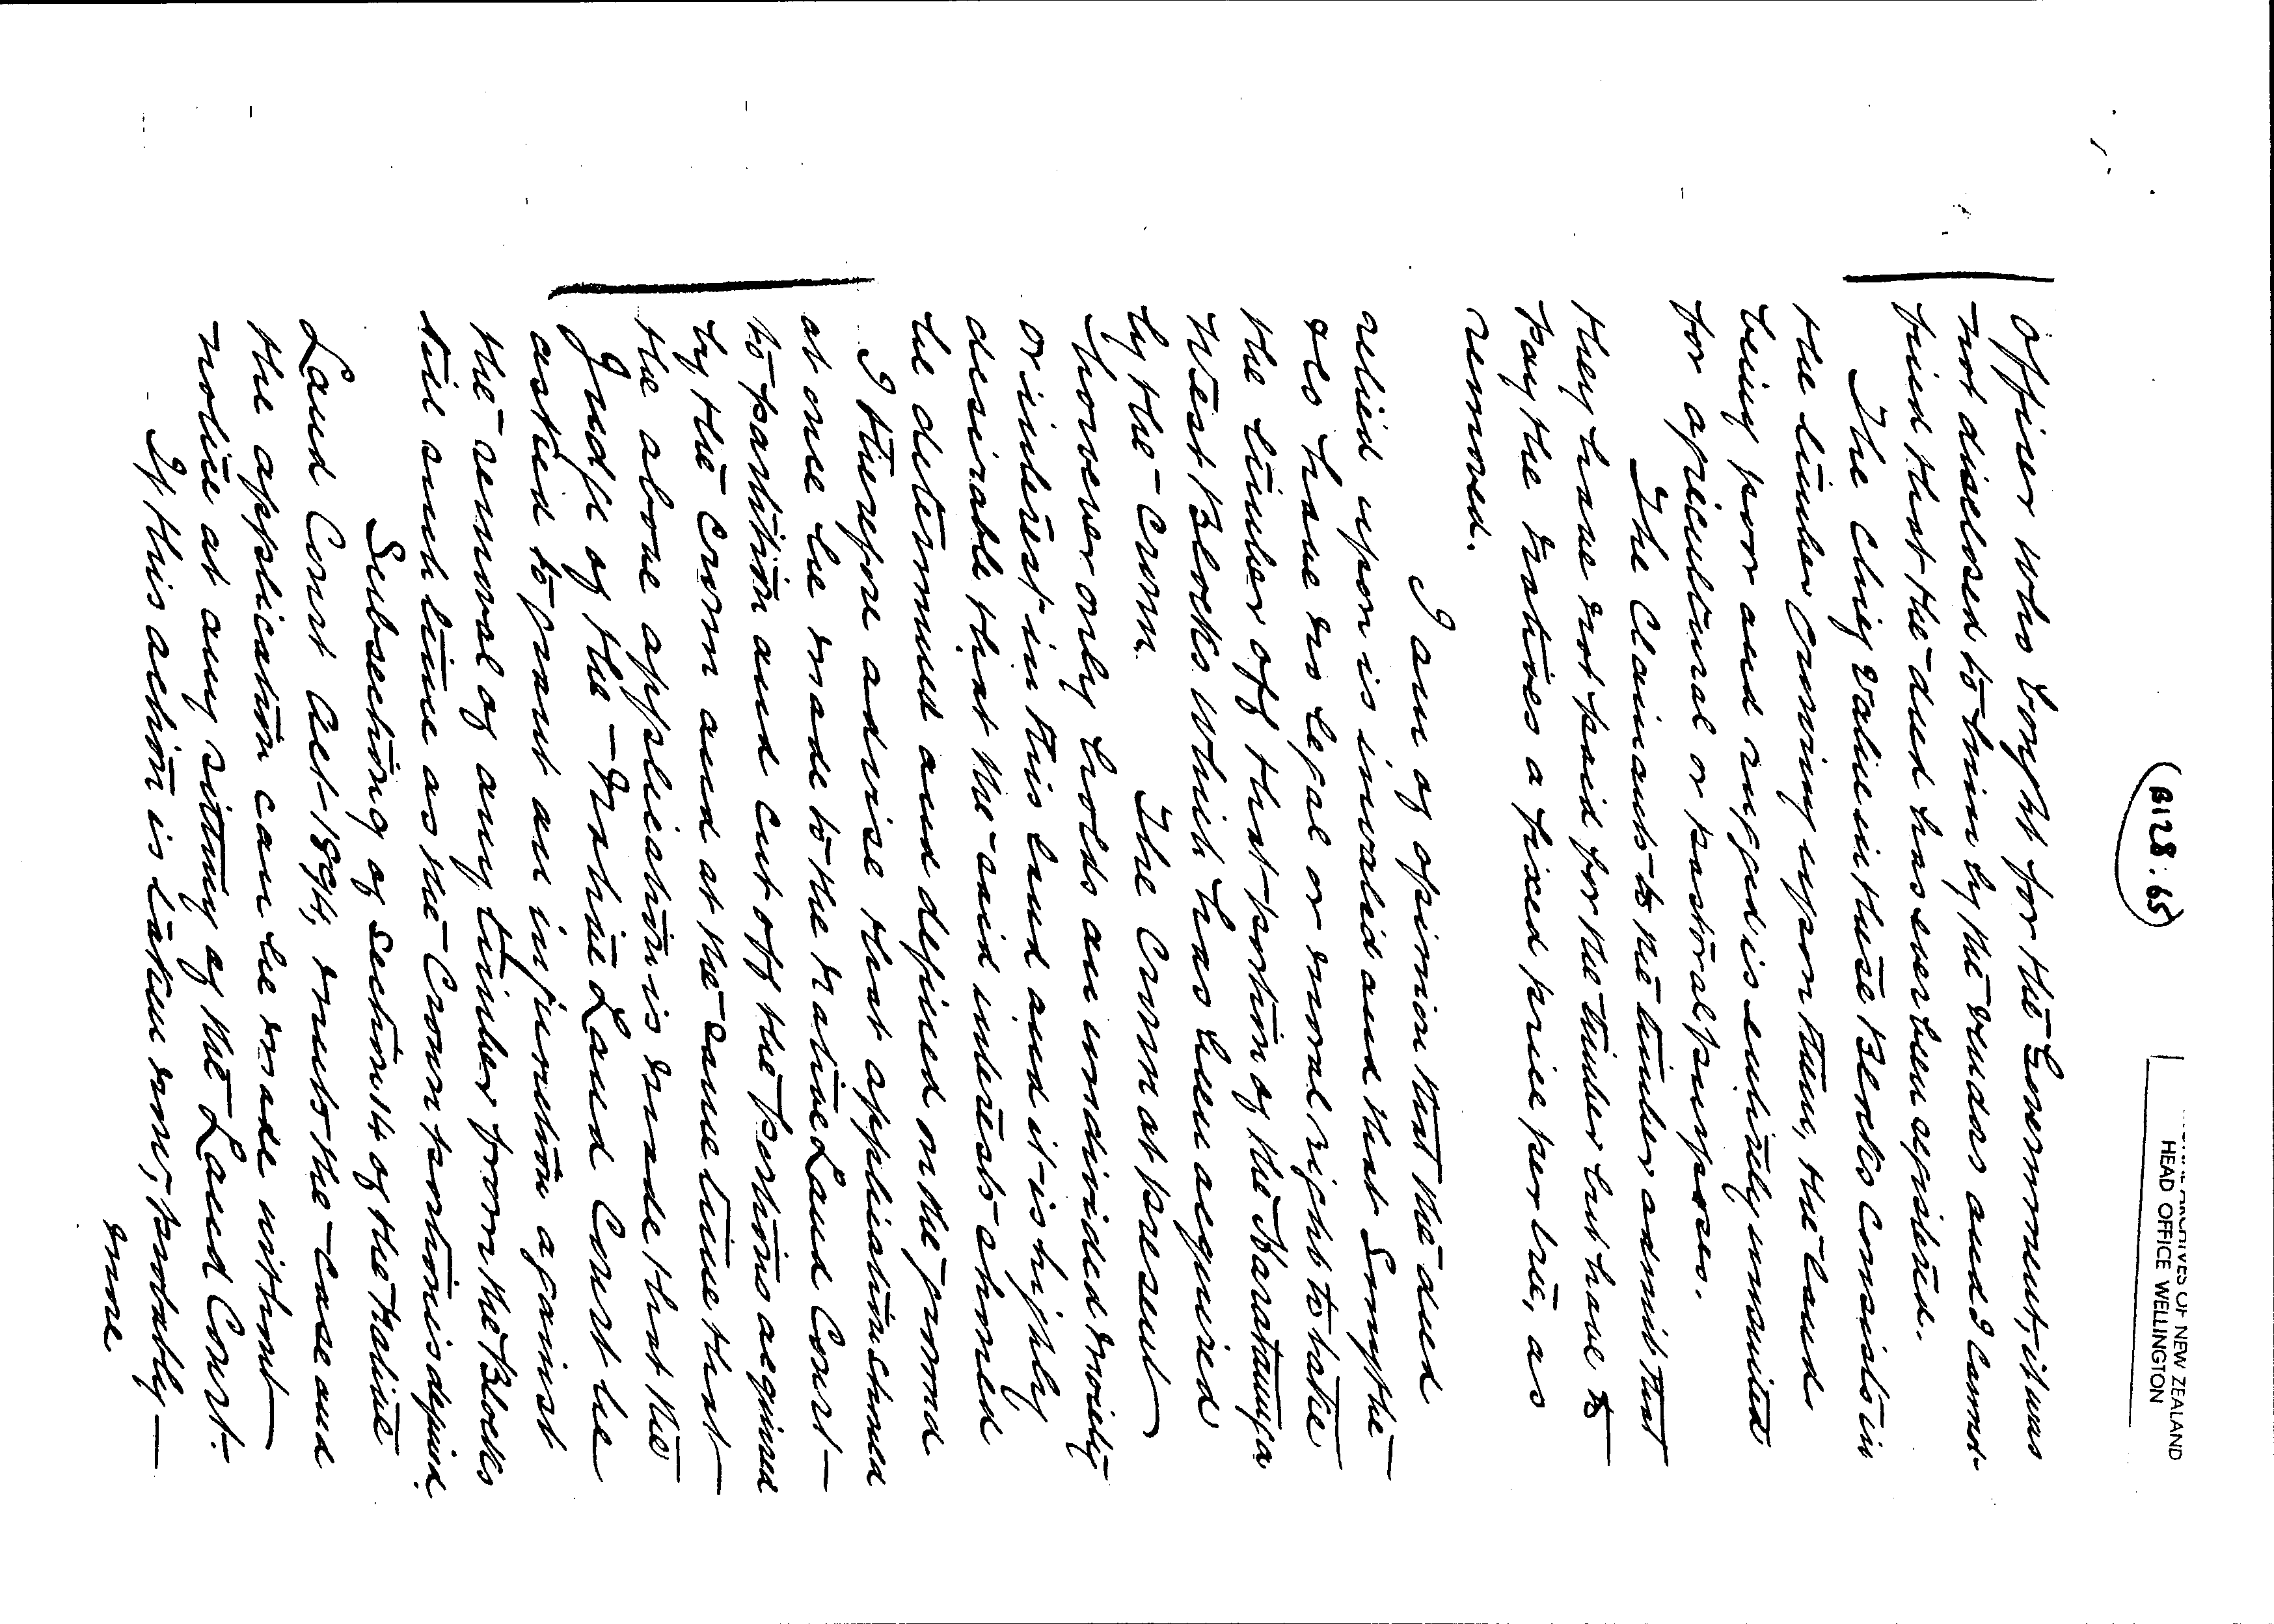 (B128.65)
ARCHIVES OF NEW ZEALAND
HEAD OFFICE WELLINGTON
Officer who bought for the Government, it was
not disclosed to him by the vendors and I cannot
find that the deed has ever been registered.
The chief value in these Blocks consists in
the timber growing upon them, the land
being poor and rugged is entirely unsuited
for agricultural or pastoral purposes.
The Claimants to the timber admit that
they have not paid for the timber but have to
pay the natives a fixed price per tree, as
removed.
I am of opinion that the deed
relied upon is invalid and that Smythe
&Co have no legal or moral right to take
the timber off that portion of the
West Blocks which has been acquired
by the Crown. The Crown at present
however only holds an undivided moiety
or interest in this land and it is highly
desirable that the said interests should
be determined and defined on the ground
I therefore advise that application should
at once be made to the native Land Court
to partition and cut off the portions acquired
by the Crown and at the same time that
the above application is made that the
Judge of the Native Land Court be
asked to grant an injunction against
the removal of any timber from the Blocks
til such time as the Crown portion is defined.
Subsection 9 of Section 14 of the Native
Land Court Act 1894, meets the case and
the application can be made without
notice at any sitting of the Land Court.
If this action is taken now, probably
some